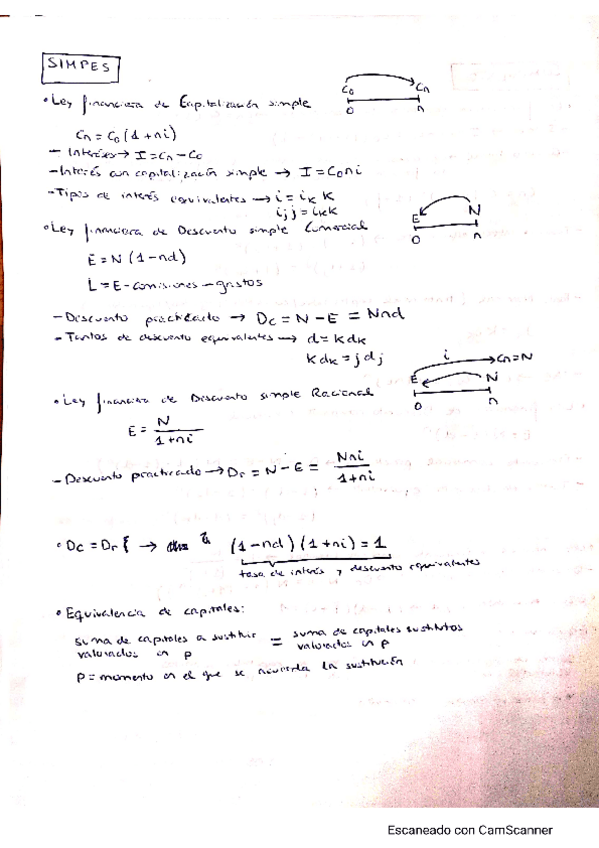 SIMPES
• Ley financiera de Capitalización simple
C₀ Cn
0 n
Cn = C₀ (1 + ni)
- Interéses → I = Cn - C₀
- Interés con capitalización simple → I = C₀ni
- Tipos de interés equivalentes → i = iₖ k
iⱼ j = iₖk
E N
0 n
• Ley financiera de Descuento simple Comercial
E = N (1 - nd)
L = E - comisiones - gastos
- Descuento practicado → Dc = N - E = Nnd
- Tantos de descuento equivalentes → d = k dₖ
k dₖ = j dⱼ
i Cn = N
E N
0 n
• Ley financiera de Descuento simple Racional
E = N / 1 + ni
- Descuento practicado → Dr = N - E = Nni / 1 + ni
• Dc = Dr { → (1 - nd) (1 + ni) = 1
tasa de interés y descuento equivalentes
• Equivalencia de capitales:
suma de capitales a sustituir = suma de capitales sustitutos
valorados en p valorados en p
P = momento en el que se acuerda la sustitución
Escaneado con CamScanner